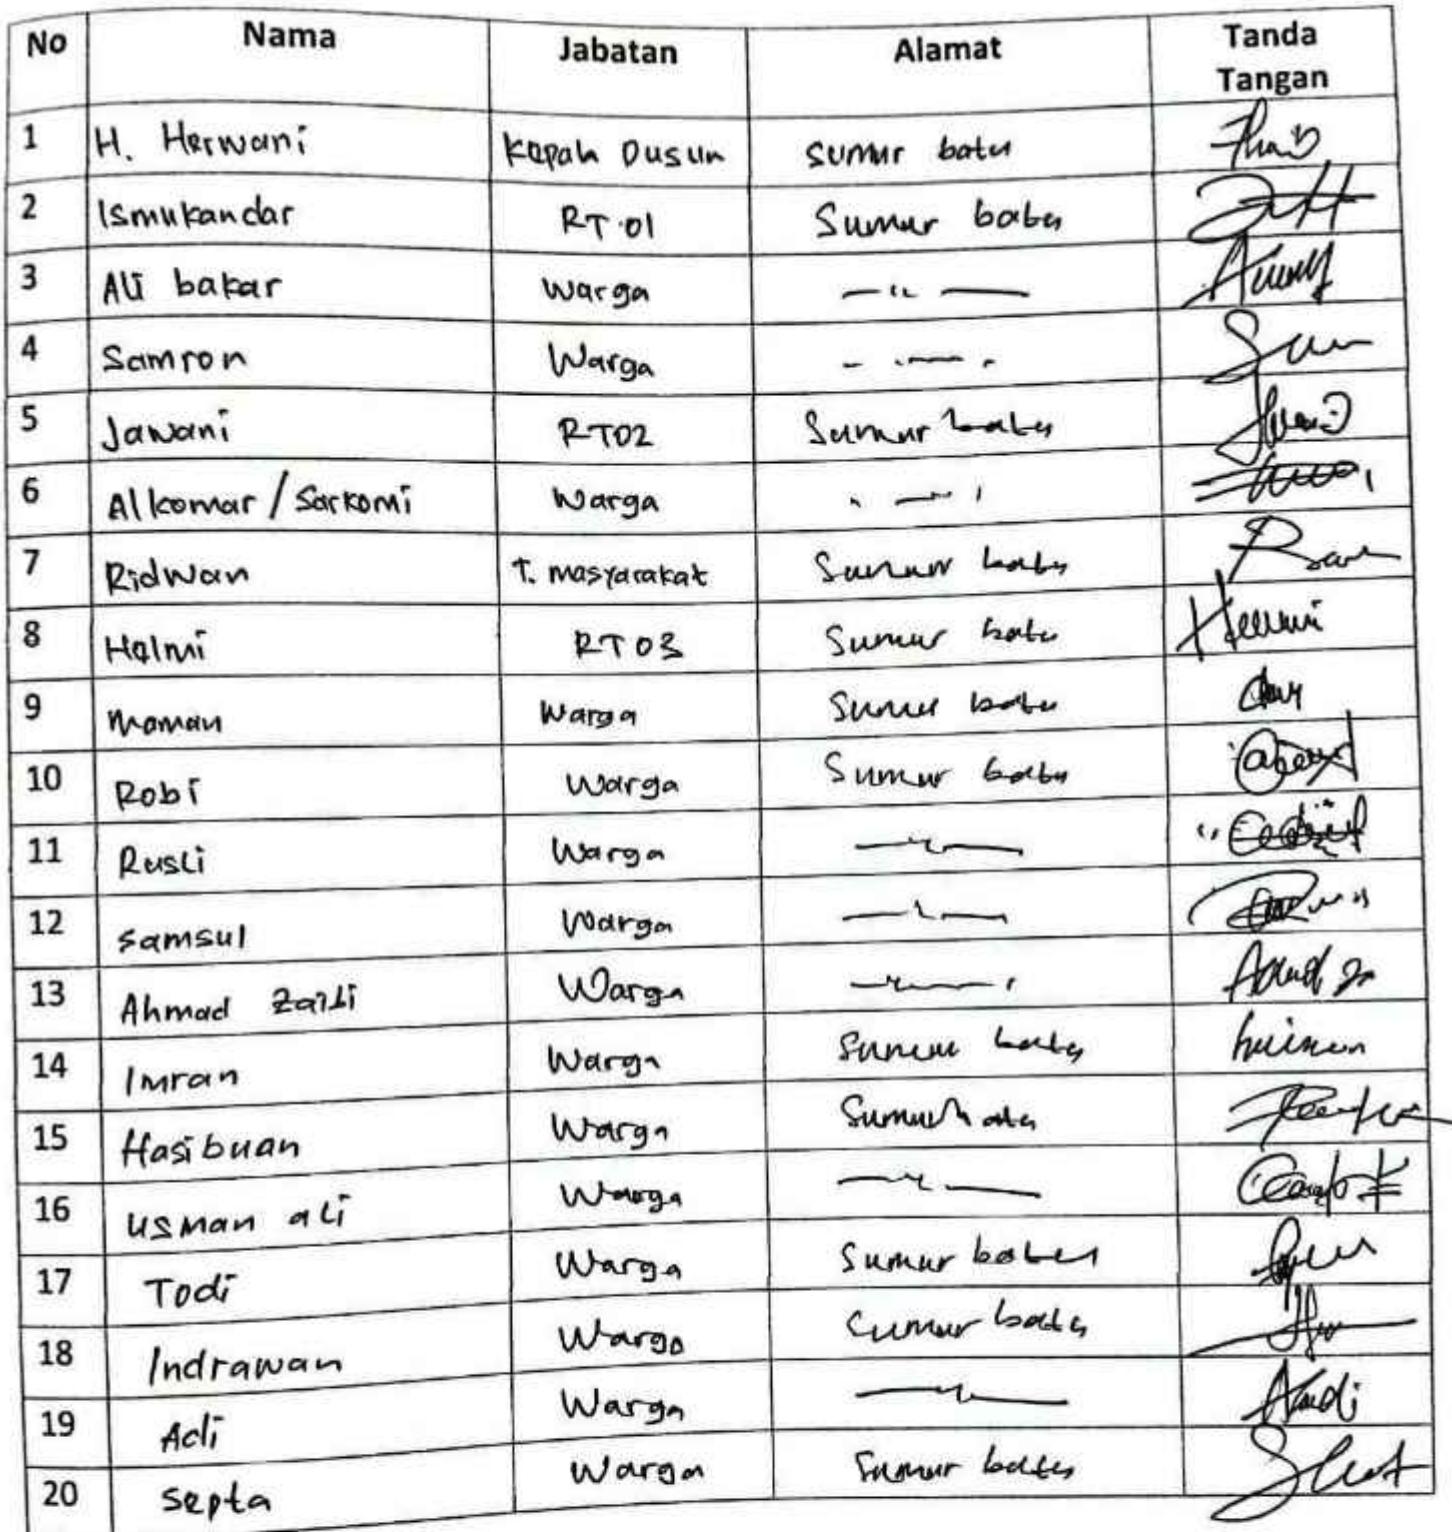 No Nama Jabatan Alamat Tanda Tangan
1 H. Herwani Kepala Dusun Sumur batu
2 Ismukandar RT.01 Sumur batu
3 Ali bakar Warga — ıı —
4 Samron Warga
5 Jawani RT02 Sumur batu
6 Alkomar / Sarkomi Warga
7 Ridwan T. masyarakat Sumur batu
8 Helmi RT03 Sumur batu
9 Maman Warga Sumur batu
10 Robi Warga Sumur batu
11 Rusli Warga
12 Samsul Warga
13 Ahmad Zaili Warga
14 Imran Warga Sumur batu
15 Hasibuan Warga Sumur batu
16 Usman ali Warga
17 Todi Warga Sumur batu
18 Indrawan Warga Sumur batu
19 Adi Warga
20 Septa Warga Sumur batu